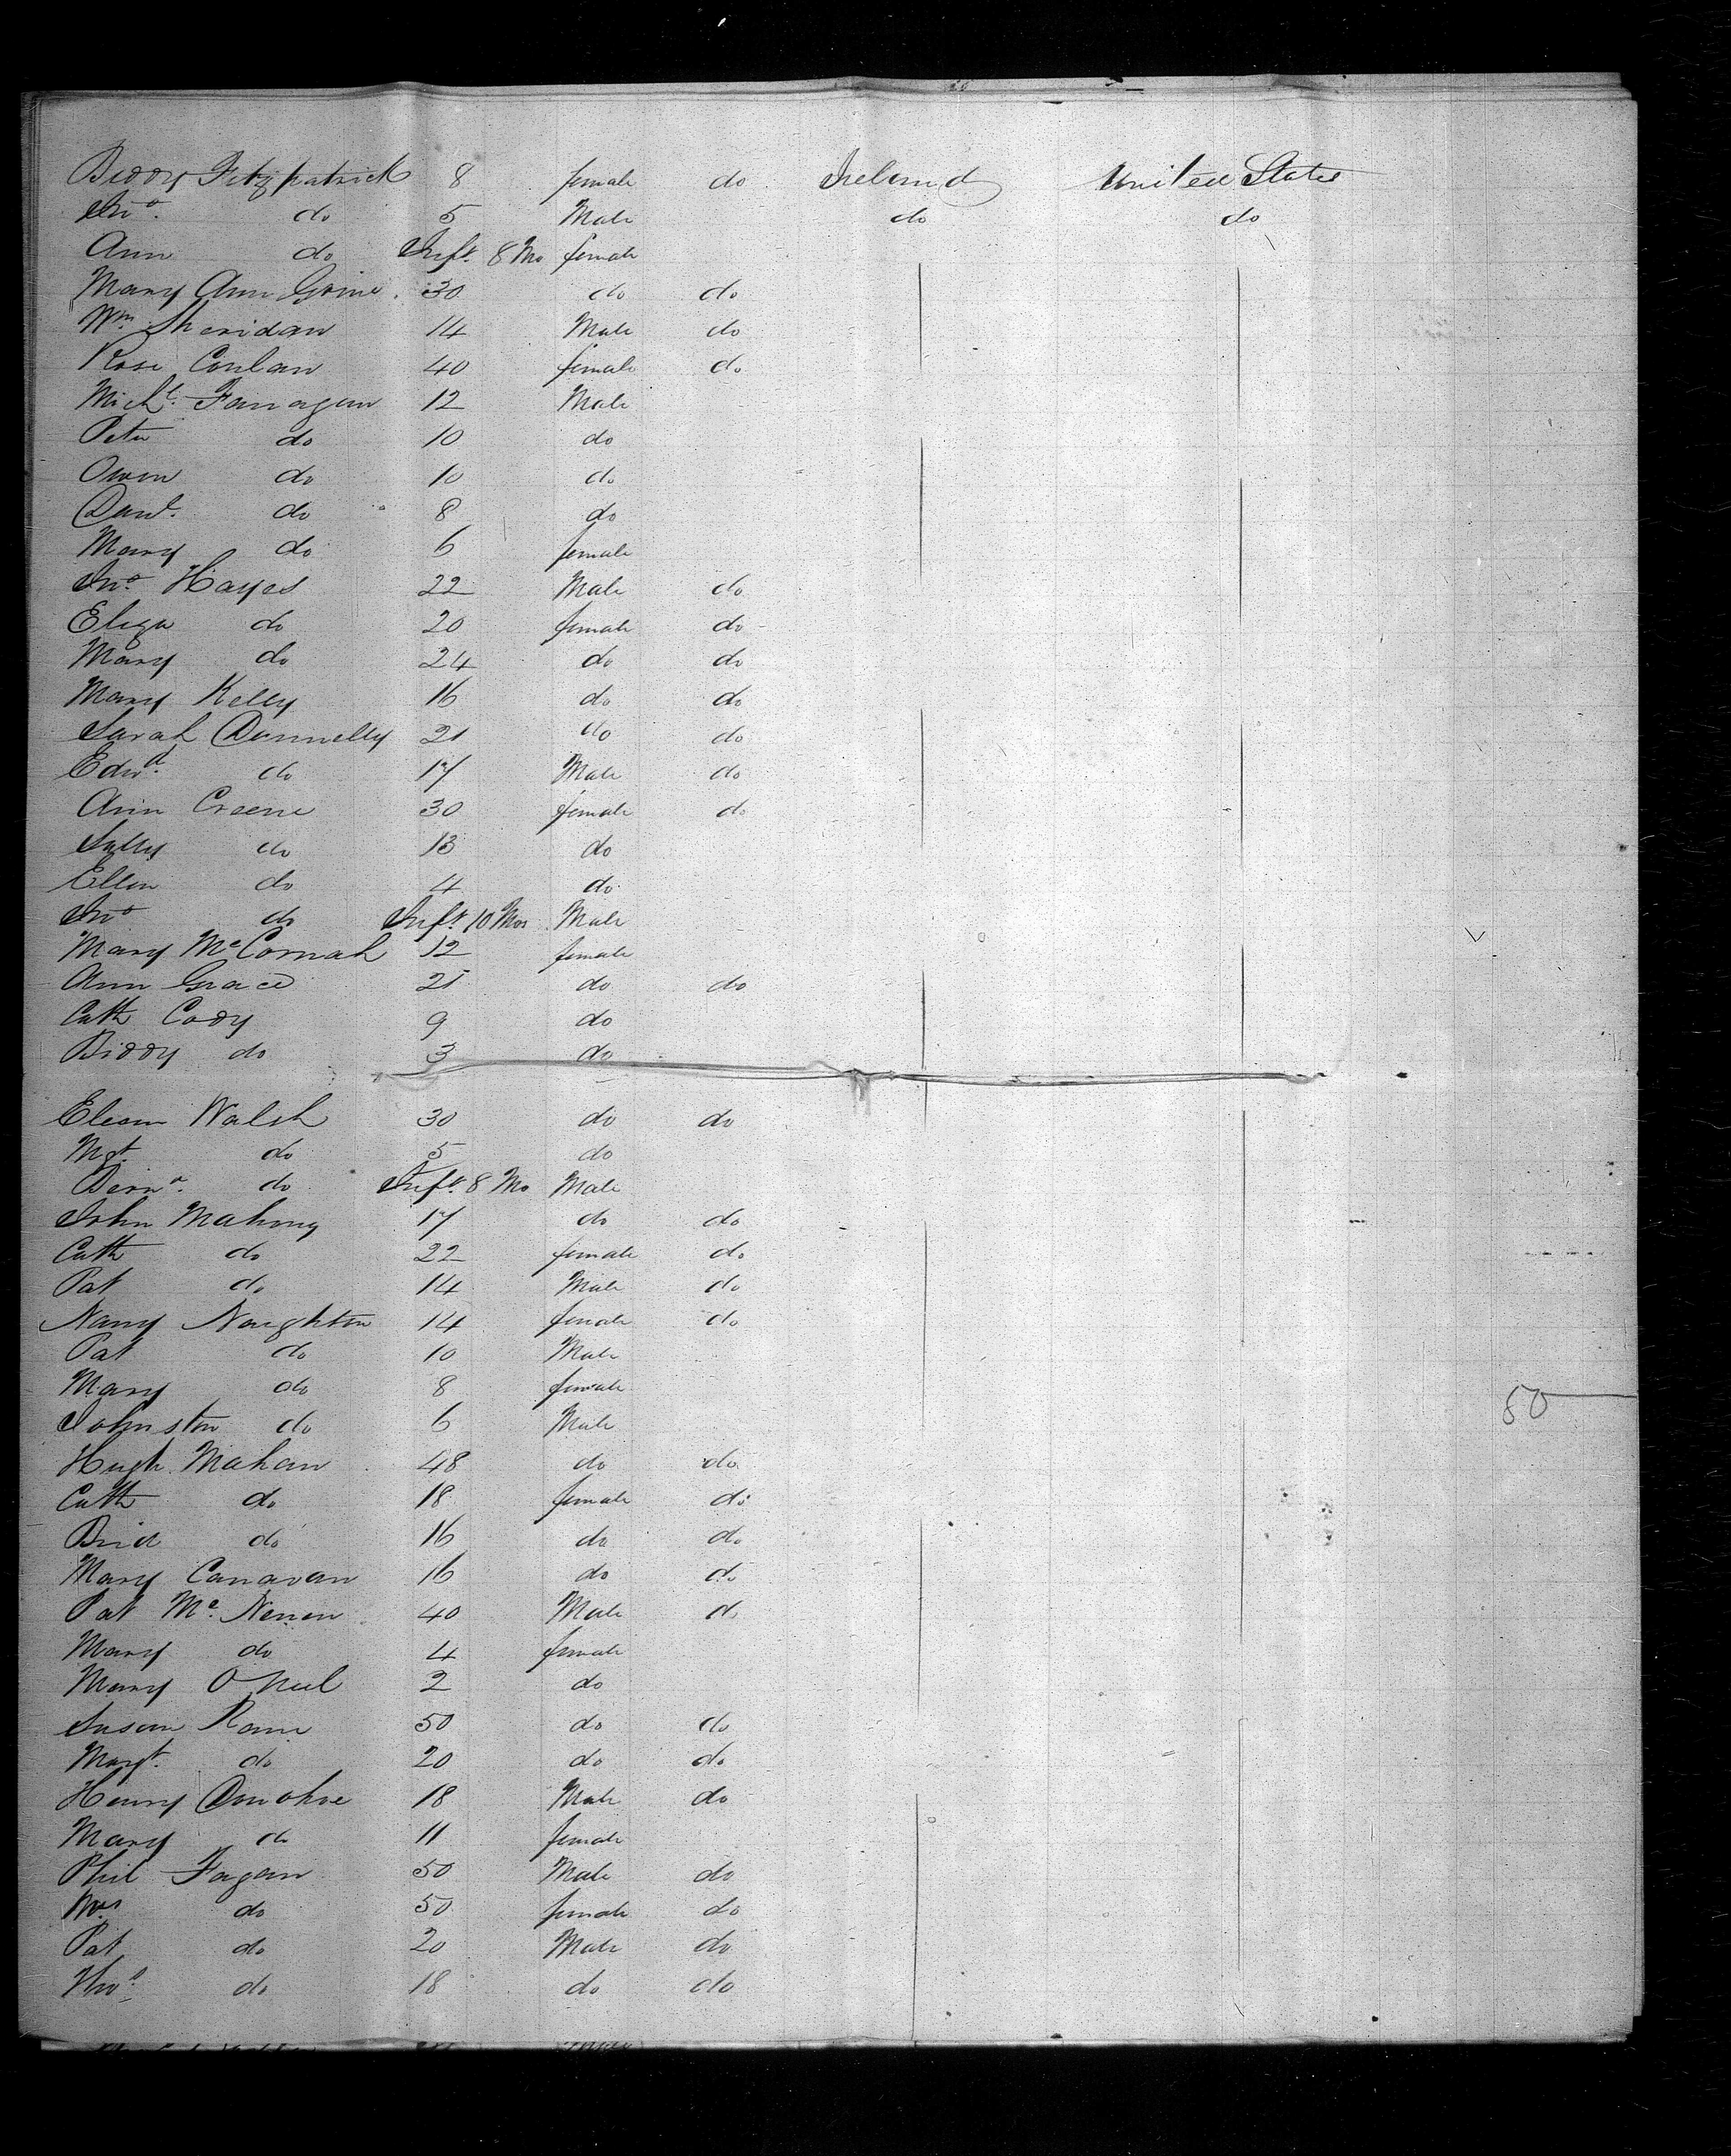 Biddy Fitzpatrick 8 female do Ireland United States
Jno. do 5 Male do do
Ann do Inft. 8 Mo female
Mary Ann 30 do do
Wm. Sheridan 14 Male do
Rose Conlan 40 female do
Michl. Fanagan 12 Male
Peter do 10 do
Owen do 10 do
Danl. do 8 do
Mary do 6 female
Jno. Hayes 22 Male do
Eliza do 20 female do
Mary do 24 do do
Mary Kelly 16 do do
Sarah Donnelly 21 do do
Edwd. do 17 Male do
Ann Creene 30 female do
Sally do 13 do
Ellen do 4 do
Jno do Inft. 10 Mos Male
Mary McCormak 12 female
Ann Grace 21 do do
Cath Cody 9 do
Biddy do 3 do
Walsh 30 do do
Mgt. do 5 do
do Inft. 8 Mo Male
John Mahony 17 do do
Cath do 22 female do
Pat do 14 Male do
Nancy Naughton 14 female do
Pat do 10 Male
Mary do 8 female
Johnston do 6 Male
50
Hugh Mahan 48 do do
Cath do 18 female do
Brid do 16 do do
Mary Canavan 16 do do
Pat Mc. 40 Male do
Mary do 4 female
Mary O Neil 2 do
Susan 50 do do
Margt. do 20 do do
Henry Donohoe 18 Male do
Mary do 11 female
Phil Fagan 50 Male do
Mrs do 50 female do
Pat do 20 Male do
Thos do 18 do do